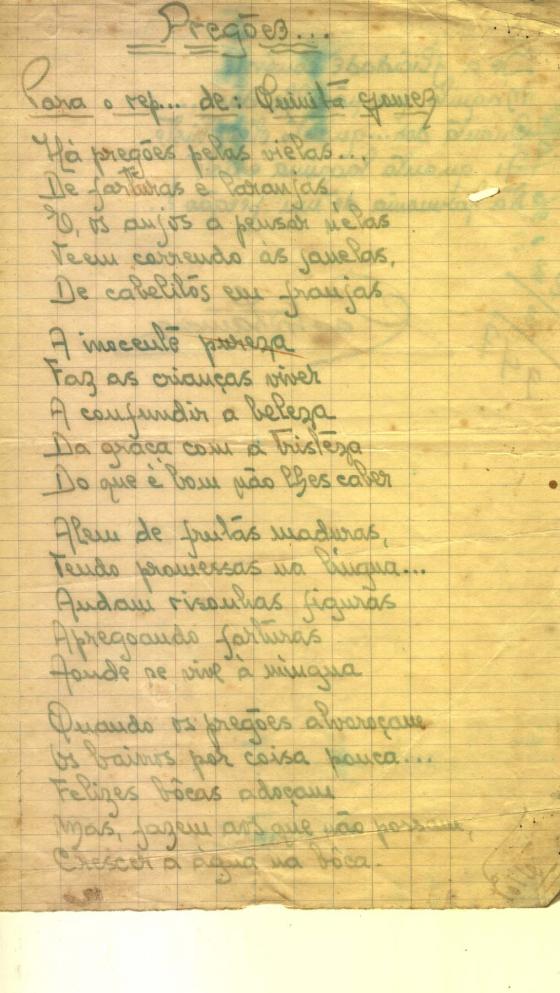 Pregões...
Para o rep... de: Quinita Gomez
Há pregões pelas vielas...
De farturas e laranjas
E, os anjos a pensar nelas
Veem correndo às janelas,
De cabelitos em franjas
A inocente pureza
Faz as crianças viver
A confundir a beleza
Da graça com a tristeza
Do que é bom não lhes caber
Alem de frutas maduras,
Tendo promessas na lingua...
Andam risonhas figuras
Apregoando farturas
Aonde se vive à mingua
Quando os pregões alvoroçam
Os bairros por coisa pouca...
Felizes bôcas adoçam
Mas, fazem aos que não possam,
Crescer a água na bôca.